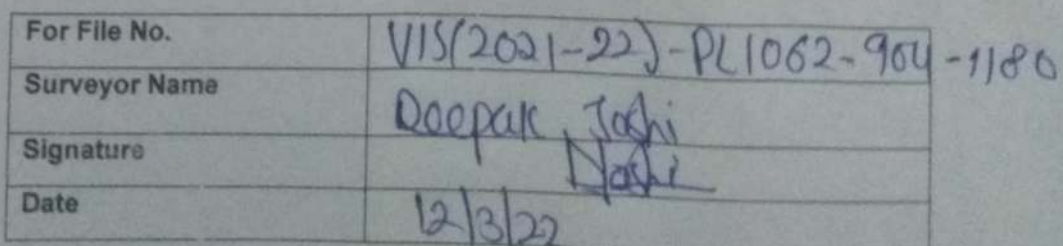 For File No. VIS(2021-22)-PL1062-904-1180
Surveyor Name Deepak Joshi
Signature DJoshi
Date 12/3/22